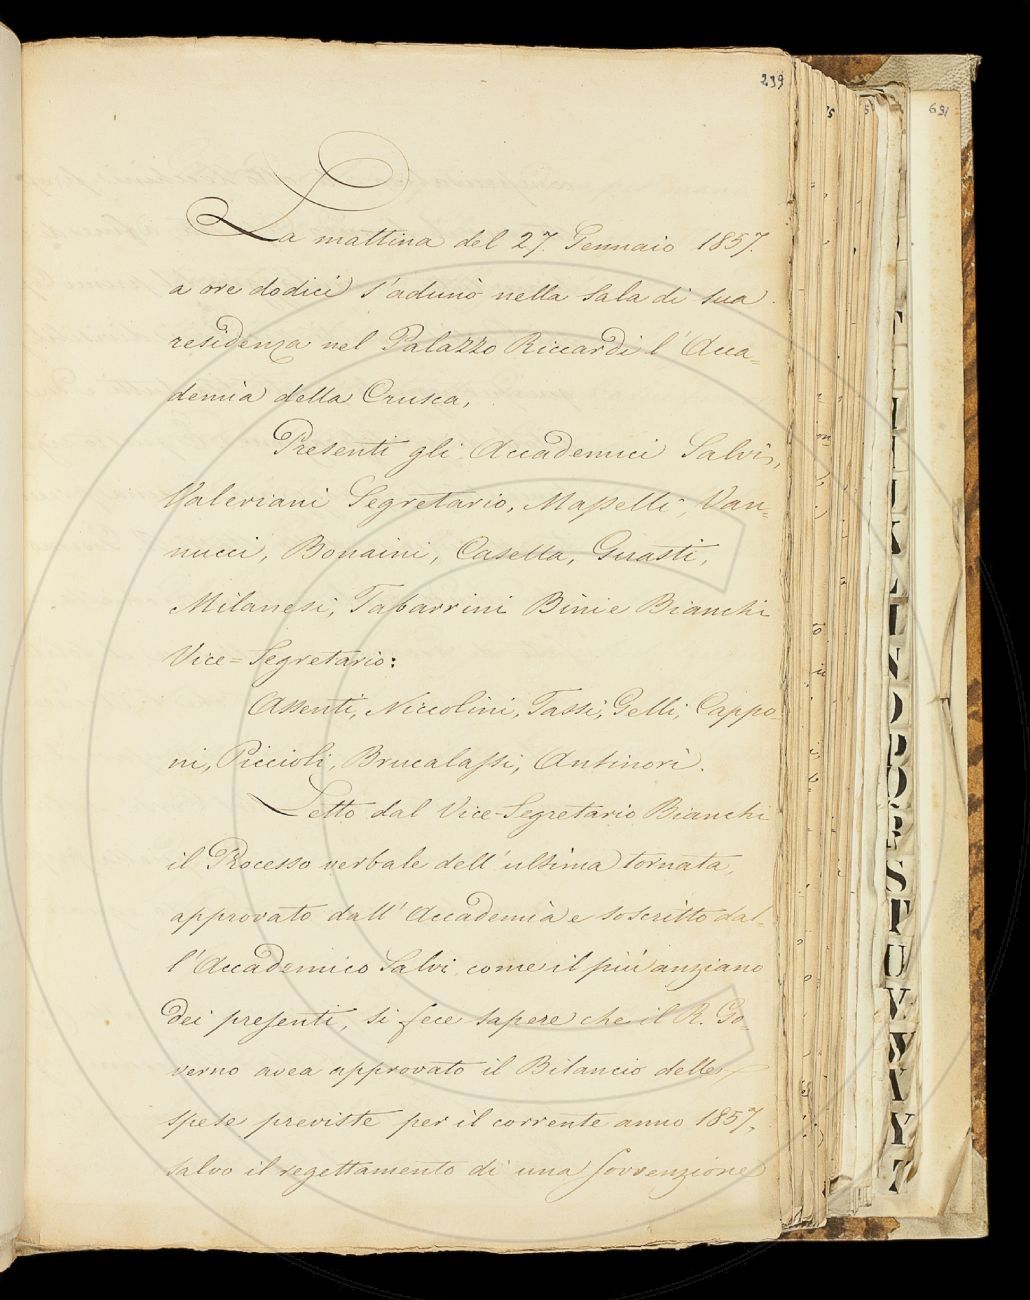 239
La mattina del 27. Gennaio 1857.
a ore dodici s'adunò nella Sala di sua
residenza nel Palazzo Riccardi l'Acca=
demia della Crusca,
Presenti gli Accademici Salvi,
Valeriani Segretario, Masselli, Van=
nucci, Bonaini, Casella, Guasti,
Milanesi, Tabarrini Bini e Bianchi
Vice=Segretario:
Assenti, Niccolini, Tassi, Gelli, Cappo=
ni, Piccioli, Brucalassi, Antinori.
Letto dal Vice-Segretario Bianchi
il Processo verbale dell'ultima tornata,
approvato dall'Accademia e soscritto dal=
l'Accademico Salvi come il più anziano
dei presenti, si fece sapere che il R. Go=
verno avea approvato il Bilancio delle
spese previste per il corrente anno 1857,
salvo il regettamento di una sovvenzione
691